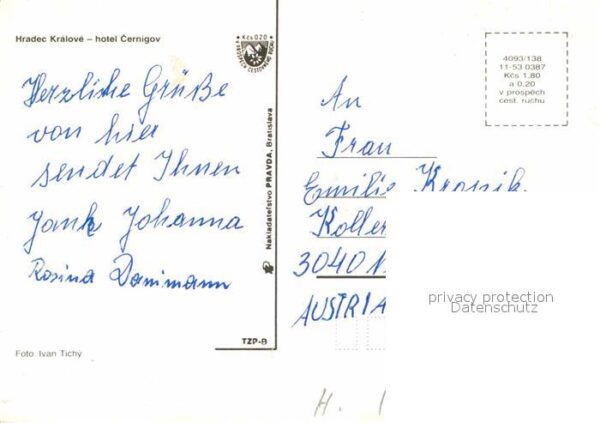 Hradec Králové – hotel Černigov
Kčs 0,20
V PROSPĚCH CESTOVNÍHO RUCHU
Herzliche Grüße
von hier
sendet Ihnen
Johanna
Rosina Dammann
Foto Ivan Tichý
Nakladateľstvo PRAVDA, Bratislava
TZP-B
4093/138
11-53 0387
Kčs 1,80
a 0,20
v prospěch
cest. ruchu
An
Frau
Emilie
Koller
3040
AUSTRIA
privacy protection
Datenschutz
H.